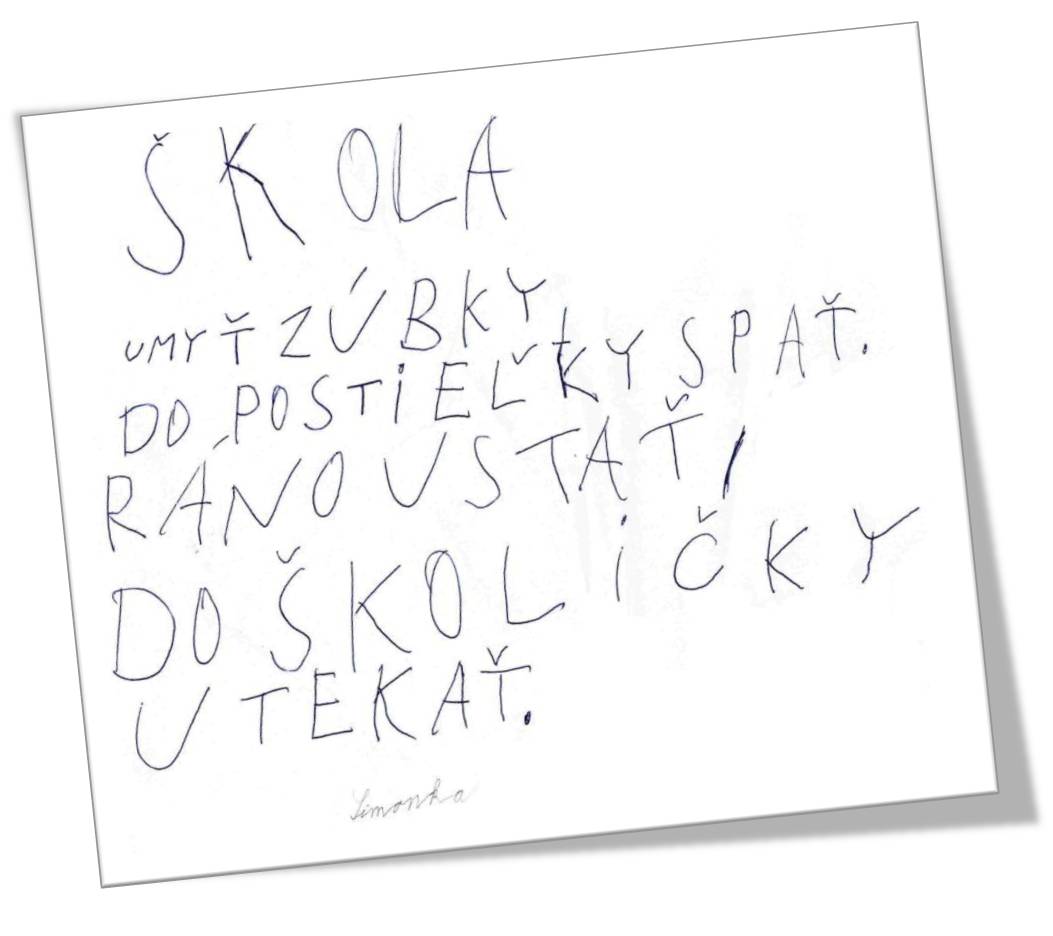 ŠKOLA
UMYŤ ZÚBKY
DO POSTIEĽKY SPAŤ.
RÁNO USTAŤ,
DO ŠKOLiČKY
UTEKAŤ.
Simonka